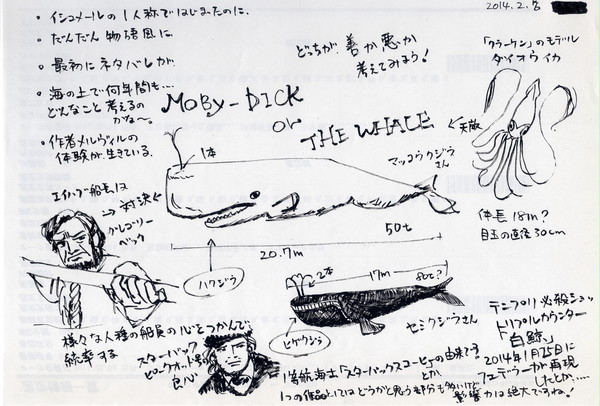 2014.2.8
・イシュメールの1人称ではじまったのに、
・だんだん物語風に。
・最初にネタバレが
・海の上で何年間も…
どんなこと考えるの
かな〜。
・作者メルヴィルの
体験が生きている。
どっちが善か悪か
考えてみよう!
「クラーケン」のモデル
ダイオウイカ
MOBY-DICK
or
THE WHALE
←天敵
マッコウクジラ
さん
1本
エイハブ船長は
→対決←
グレゴリー
ペック
50t
20.7m
ハクジラ
体長18m?
目玉の直径30cm
2本
17m
80t?
ヒゲクジラ
セミクジラさん
様々な人種の船員の心をつかんで、
統率する
スターバック
ピークオット号の
良心
1等航海士「スターバックスコーヒー」の由来?
とか
1つの作品としてはどうかと思う部分も多いけど
影響力は絶大ですね!
テニプリ必殺ショット
トリプルカウンター
「白鯨」
2014年1月25日に
フェデラーが再現
したとか……